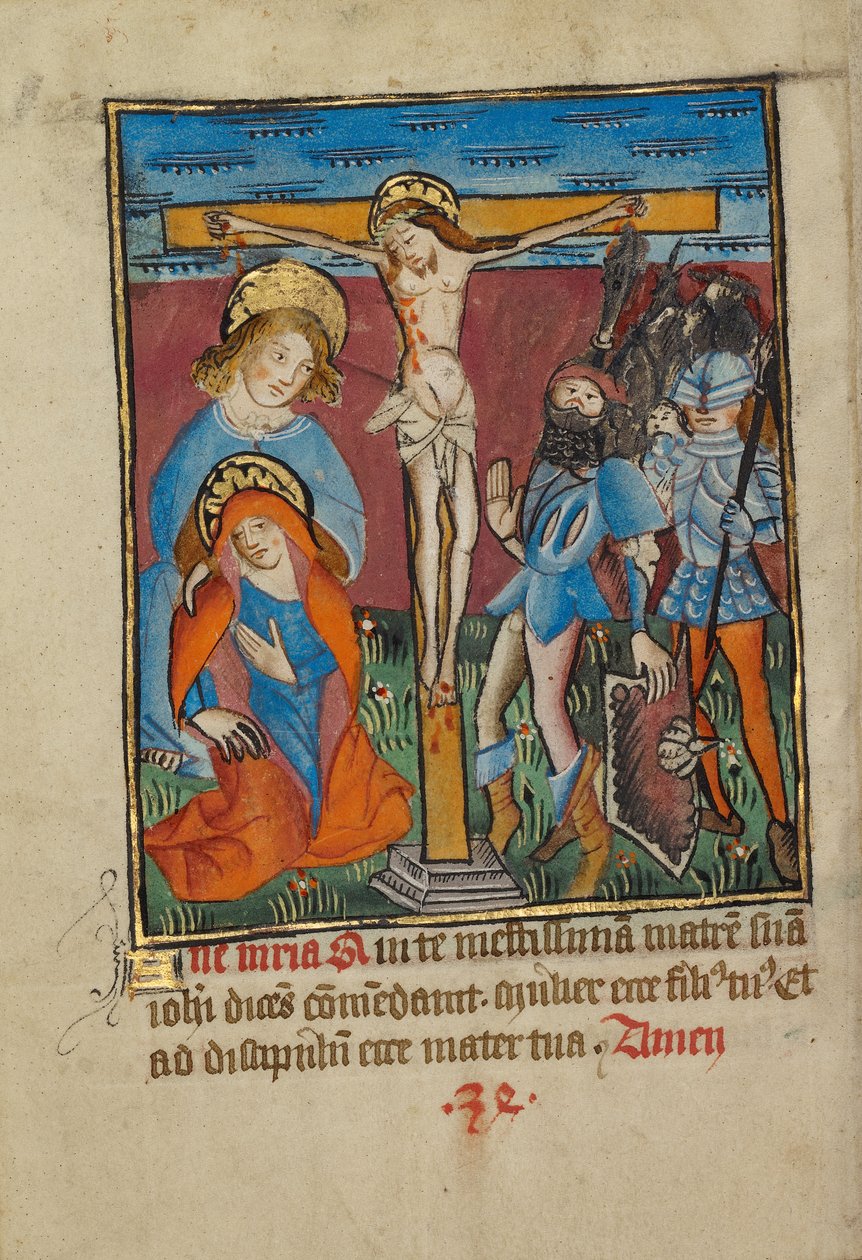 Aue mria Qui te mestissimā matrē suā
iohi dicēs cōmēdauit. Mulier ecce filiꝰ tuꝰ Et
ad discipulū ecce mater tua. Amen
·zc·